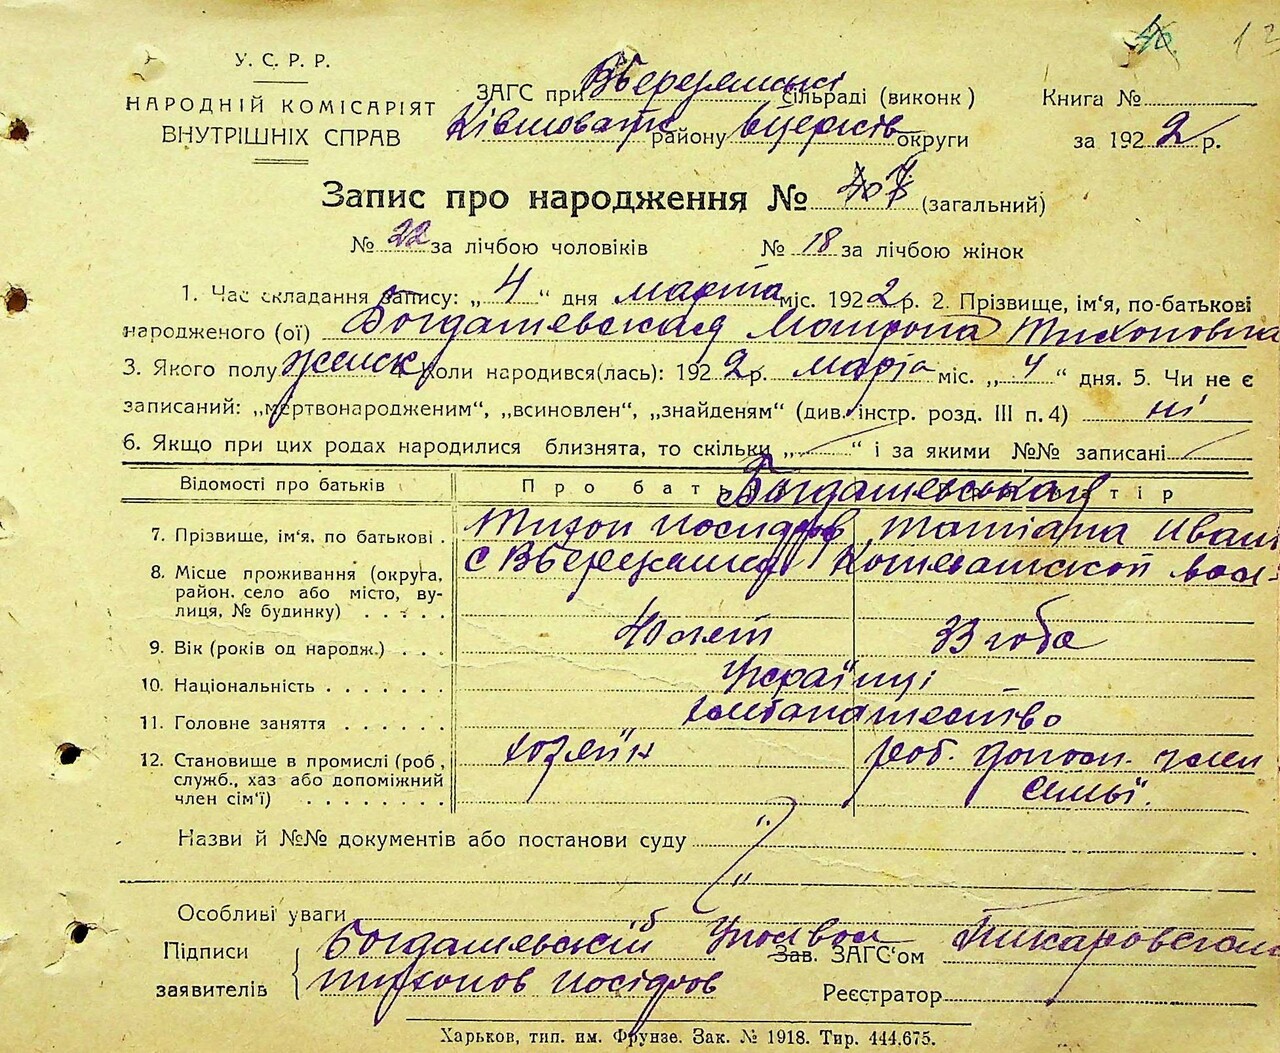 У. С. Р. Р.
НАРОДНІЙ КОМІСАРІЯТ
ВНУТРІШНІХ СПРАВ
ЗАГС при сільраді (виконк)
району округи
Книга №
за 1922 р.
Запис про народження № (загальний)
№ 22 за лічбою чоловіків № 18 за лічбою жінок
1. Час складання запису: „4" дня марта міс. 1922 р. 2. Прізвище, ім'я, по-батькові
народженого (ої) Богдашевская Матрона Тихоновна
3. Якого полу женск 4. Коли народився(лась): 1922 р. марта міс. „4" дня. 5. Чи не є
записаний: „мертвонародженим", „всиновлен", „знайденям" (див. інстр. розд. III п. 4) ні
6. Якщо при цих родах народилися близнята, то скільки „ " і за якими №№ записані
Відомості про батьків Про батька Про матір
Богдашевська
7. Прізвище, ім'я, по батькові . Тихон Татіана Иван
8. Місце проживання (округа, с
район. село або місто, ву-
лиця, № будинку) . . . . .
9. Вік (років од народж.) . . . 40 лет 33 года
10. Національність . . . . . . . Українці
11. Головне заняття . . . . . .
12. Становище в промислі (роб, хозяїн роб. член
служб., хаз або допоміжний семьї.
член сім'ї) . . . . . . . .
Назви й №№ документів або постанови суду "
"
Особливі уваги
Підписи Богдашевскій Зав. ЗАГС'ом
заявителів Тихонов Реєстратор
Харьков, тип. им. Фрунзе. Зак. № 1918. Тир. 444.675.